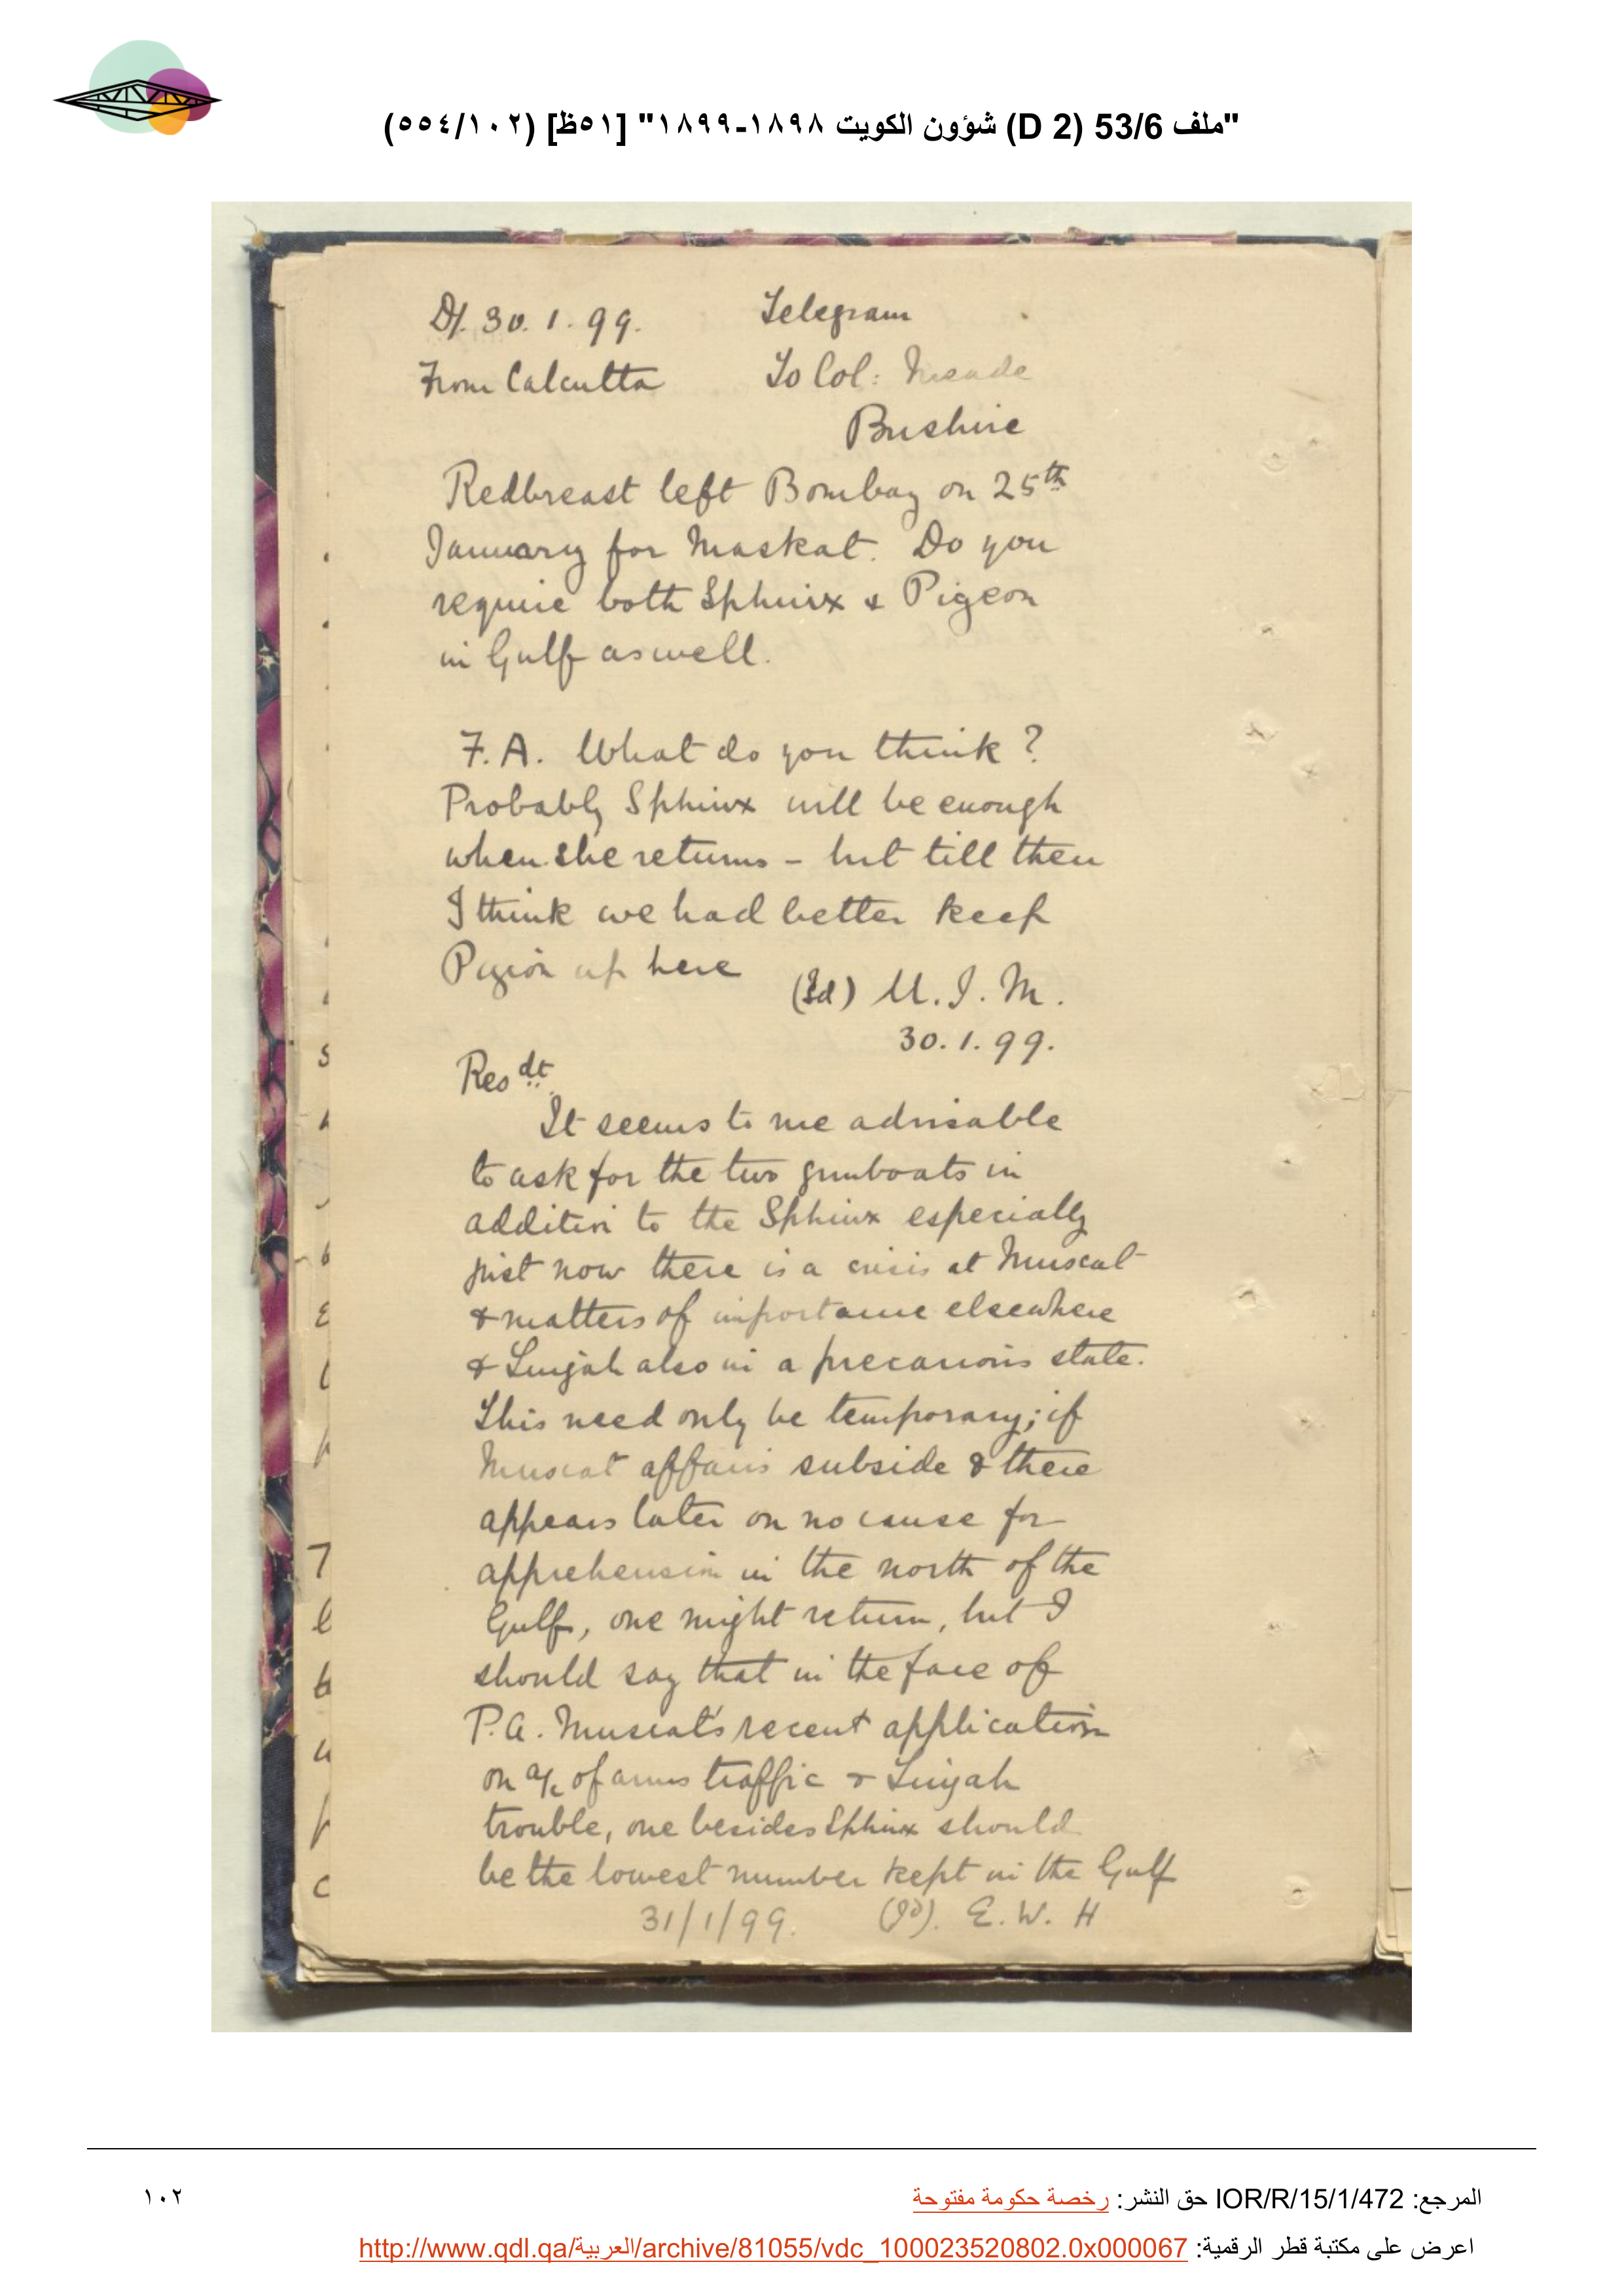 "ملف 53/6 (D 2) شؤون الكويت ١٨٩٨-١٨٩٩" [٥١ظ] (٥٥٤/١٠٢)
D/. 30. 1. 99. Telegram
From Calcutta To Col: Meade
Bushire
Redbreast left Bombay on 25th
January for Maskat. Do you
require both Sphinx & Pigeon
in Gulf as well.
F.A. What do you think?
Probably Sphinx will be enough
when she returns - but till then
I think we had better keep
Pigeon up here (Sd) M. J. M.
30. 1. 99.
Resdt
It seems to me advisable
to ask for the two gunboats in
addition to the Sphinx especially
just now there is a crisis at Muscat
& matters of importance elsewhere
& Lingah also in a precarious state.
This need only be temporary; if
Muscat affairs subside & there
appears later on no cause for
apprehension in the north of the
Gulf, one might return, but I
should say that in the face of
P.A. Muscat's recent application
on a/c of arms traffic & Lingah
trouble, one besides Sphinx should
be the lowest number kept in the Gulf
31/1/99. (Sd). E. W. H
7
المرجع: IOR/R/15/1/472 حق النشر: رخصة حكومة مفتوحة
١٠٢
اعرض على مكتبة قطر الرقمية: http://www.qdl.qa/العربية/archive/81055/vdc_100023520802.0x000067